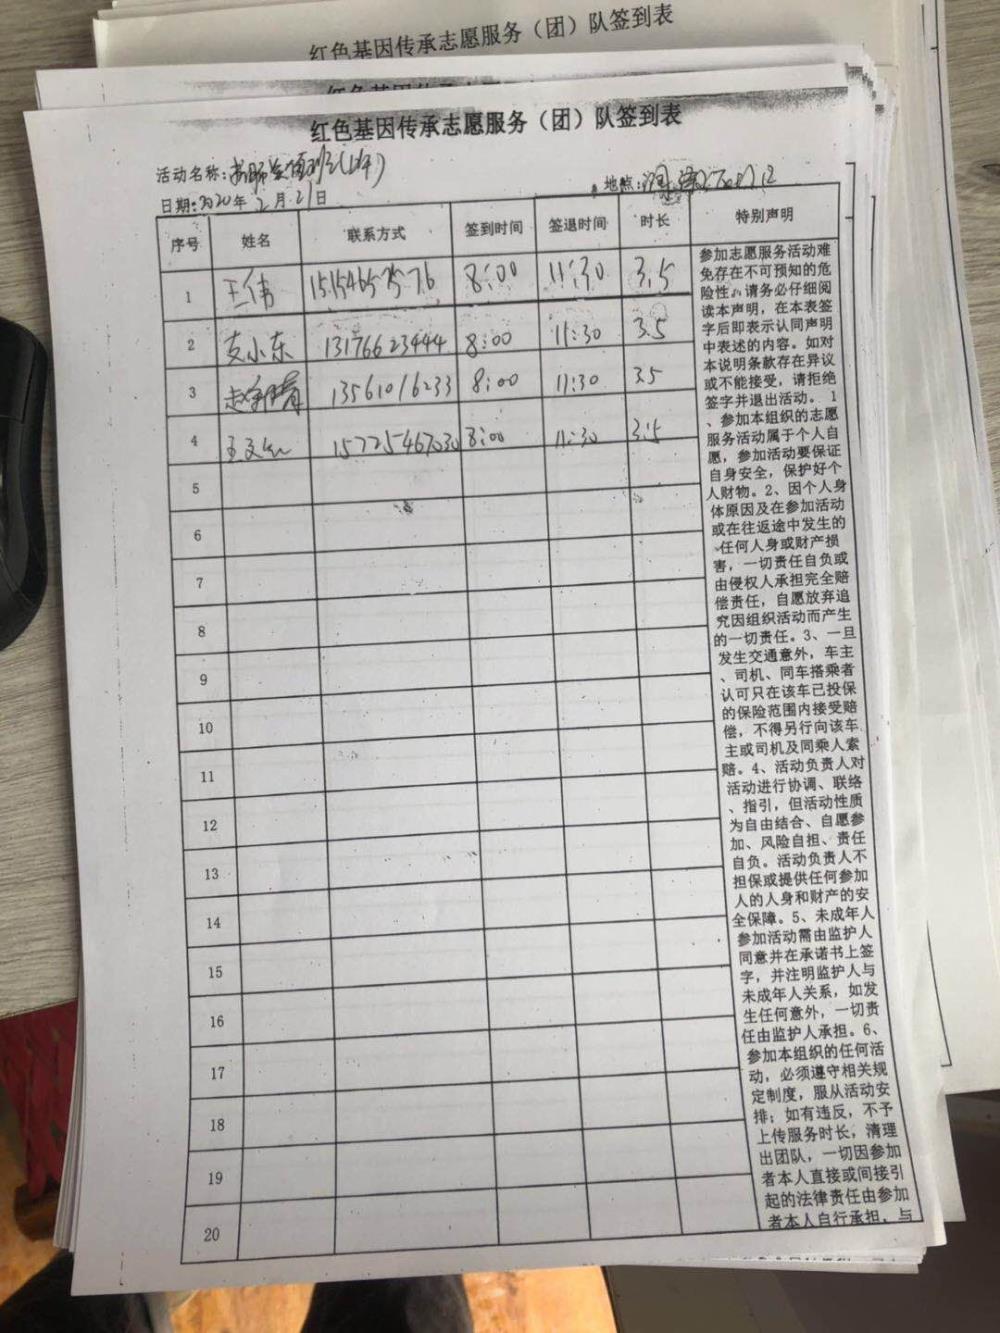 红色基因传承志愿服务（团）队签到表
红色基因传承志愿服务（团）队签到表
活动名称:
地点:
日期:2020年2月21日
序号 姓名 联系方式 签到时间 签退时间 时长 特别声明
1 王伟 15154657576 8:00 11:30 3.5
2 支小东 13176623444 8:00 11:30 3.5
3 13561016233 8:00 11:30 3.5
4 王文 15725467030 8:00 11:30 3.5
5
6
7
8
9
10
11
12
13
14
15
16
17
18
19
20
参加志愿服务活动难
免存在不可预知的危
险性，请务必仔细阅
读本声明，在本表签
字后即表示认同声明
中表述的内容。如对
本说明条款存在异议
或不能接受，请拒绝
签字并退出活动。1
、参加本组织的志愿
服务活动属于个人自
愿，参加活动要保证
自身安全，保护好个
人财物。2、因个人身
体原因及在参加活动
或在往返途中发生的
任何人身或财产损
害，一切责任自负或
由侵权人承担完全赔
偿责任，自愿放弃追
究因组织活动而产生
的一切责任。3、一旦
发生交通意外，车主
、司机、同车搭乘者
认可只在该车已投保
的保险范围内接受赔
偿，不得另行向该车
主或司机及同乘人索
赔。4、活动负责人对
活动进行协调、联络
、指引，但活动性质
为自由结合、自愿参
加、风险自担、责任
自负。活动负责人不
担保或提供任何参加
人的人身和财产的安
全保障。5、未成年人
参加活动需由监护人
同意并在承诺书上签
字，并注明监护人与
未成年人关系，如发
生任何意外，一切责
任由监护人承担。6、
参加本组织的任何活
动，必须遵守相关规
定制度，服从活动安
排；如有违反，不予
上传服务时长，清理
出团队，一切因参加
者本人直接或间接引
起的法律责任由参加
者本人自行承担，与